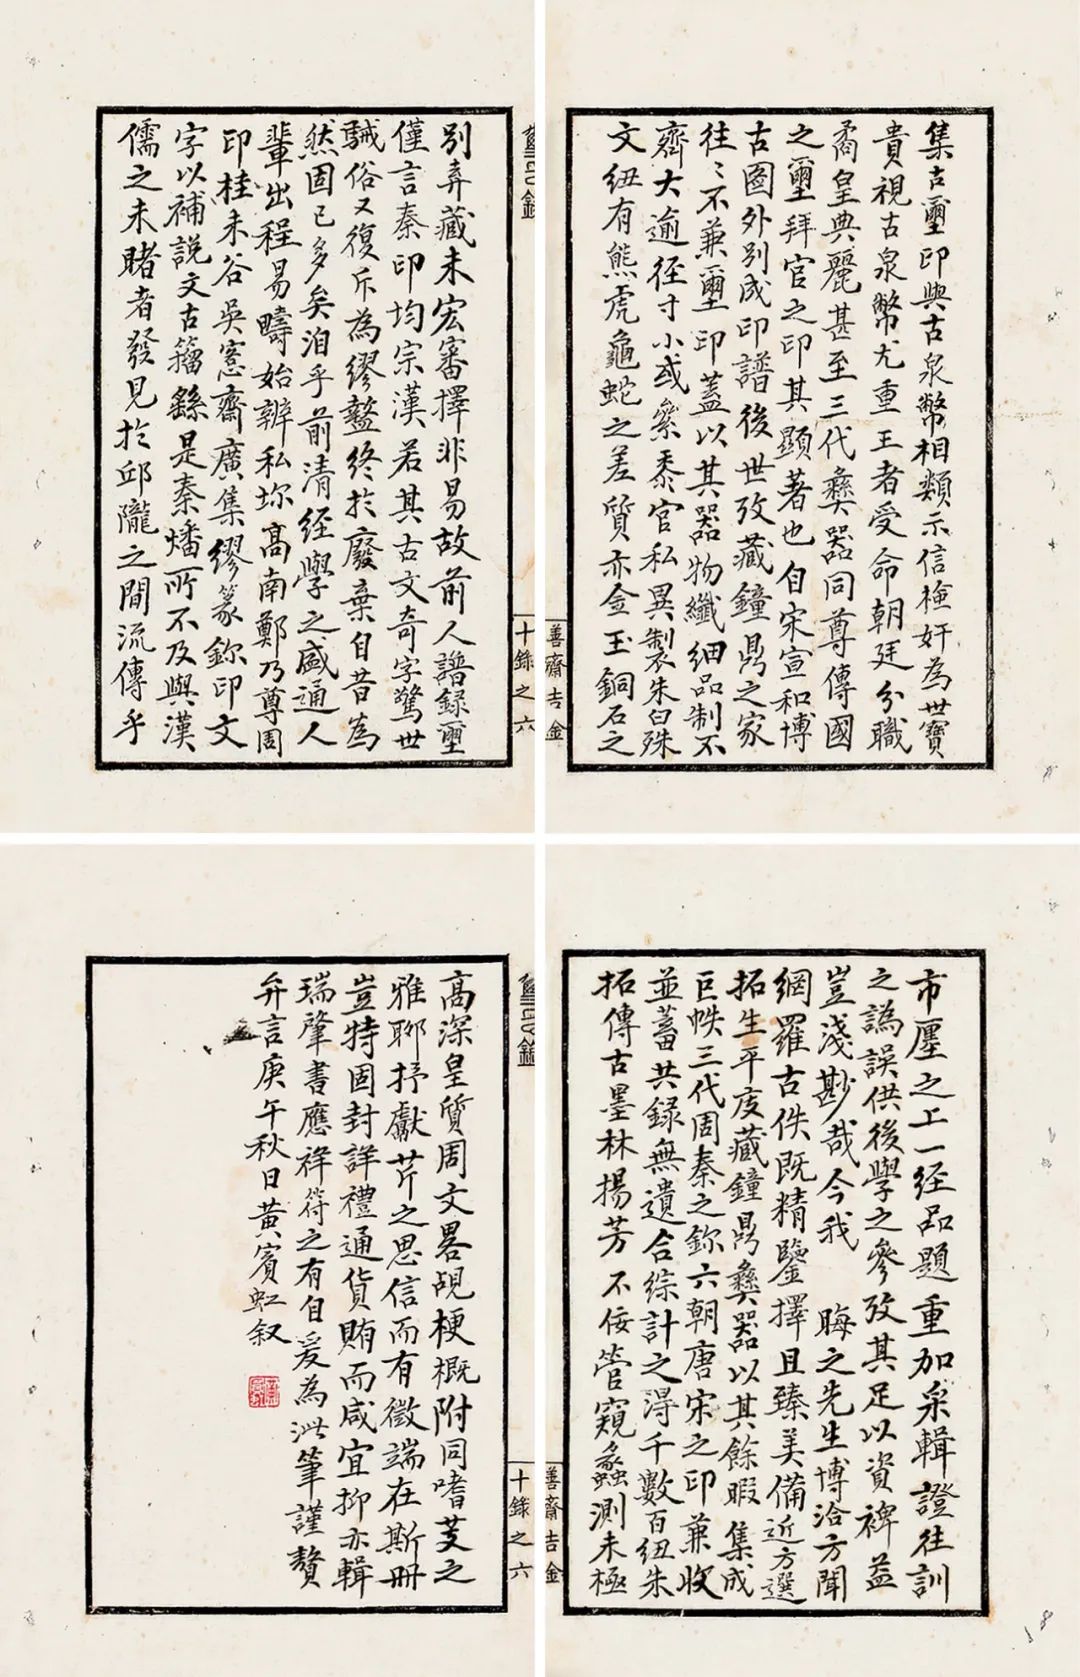 集古璽印與古泉幣相類示信檢奸為世寶
貴視古泉幣尤重王者受命朝廷分職
矞皇典麗甚至三代彝器同尊傳國
之璽拜官之印其顯著也自宋宣和博
古圖外別成印譜後世攷藏鐘鼎之家
往〻不兼璽印蓋以其器物纖細品制不
齊大逾徑寸小或絫黍官私異製朱白殊
文紐有熊虎龜蛇之差質亦金玉銅石之
善齋吉金
十錄之六
別弆藏未宏審擇非易故前人譜録璽
僅言秦印均宗漢若其古文奇字驚世
駴俗又復斥為繆盭終於廢棄自昔為
然固已多矣洎乎前清經學之盛通人
輩出程易疇始辨私坏高南鄭乃尊周
印桂未谷吳愙齋廣集繆篆鉨印文
字以補說文古籀繇是秦燔所不及與漢
儒之未睹者發見於邱隴之間流傳乎
市廛之上一經品題重加采輯證往訓
之譌誤供後學之參攷其足以資裨益
豈淺尠哉今我 晦之先生博洽方聞
網羅古佚既精鑒擇且臻美備近方選
拓生平庋藏鐘鼎彝器以其餘暇集成
巨帙三代周秦之鉨六朝唐宋之印兼收
並蓄共録無遺合綜計之得千數百紐朱
拓傳古墨林揚芳不佞管窺蠡測未極
善齋吉金
十錄之六
高深皇質周文畧覘梗概附同嗜芰之
雅聊抒獻芹之思信而有徵端在斯冊
豈特固封詳禮通貨賄而咸宜抑亦輯
瑞肇書應祥符之有自爰為泚筆謹贅
弁言庚午秋日黃賓虹叙